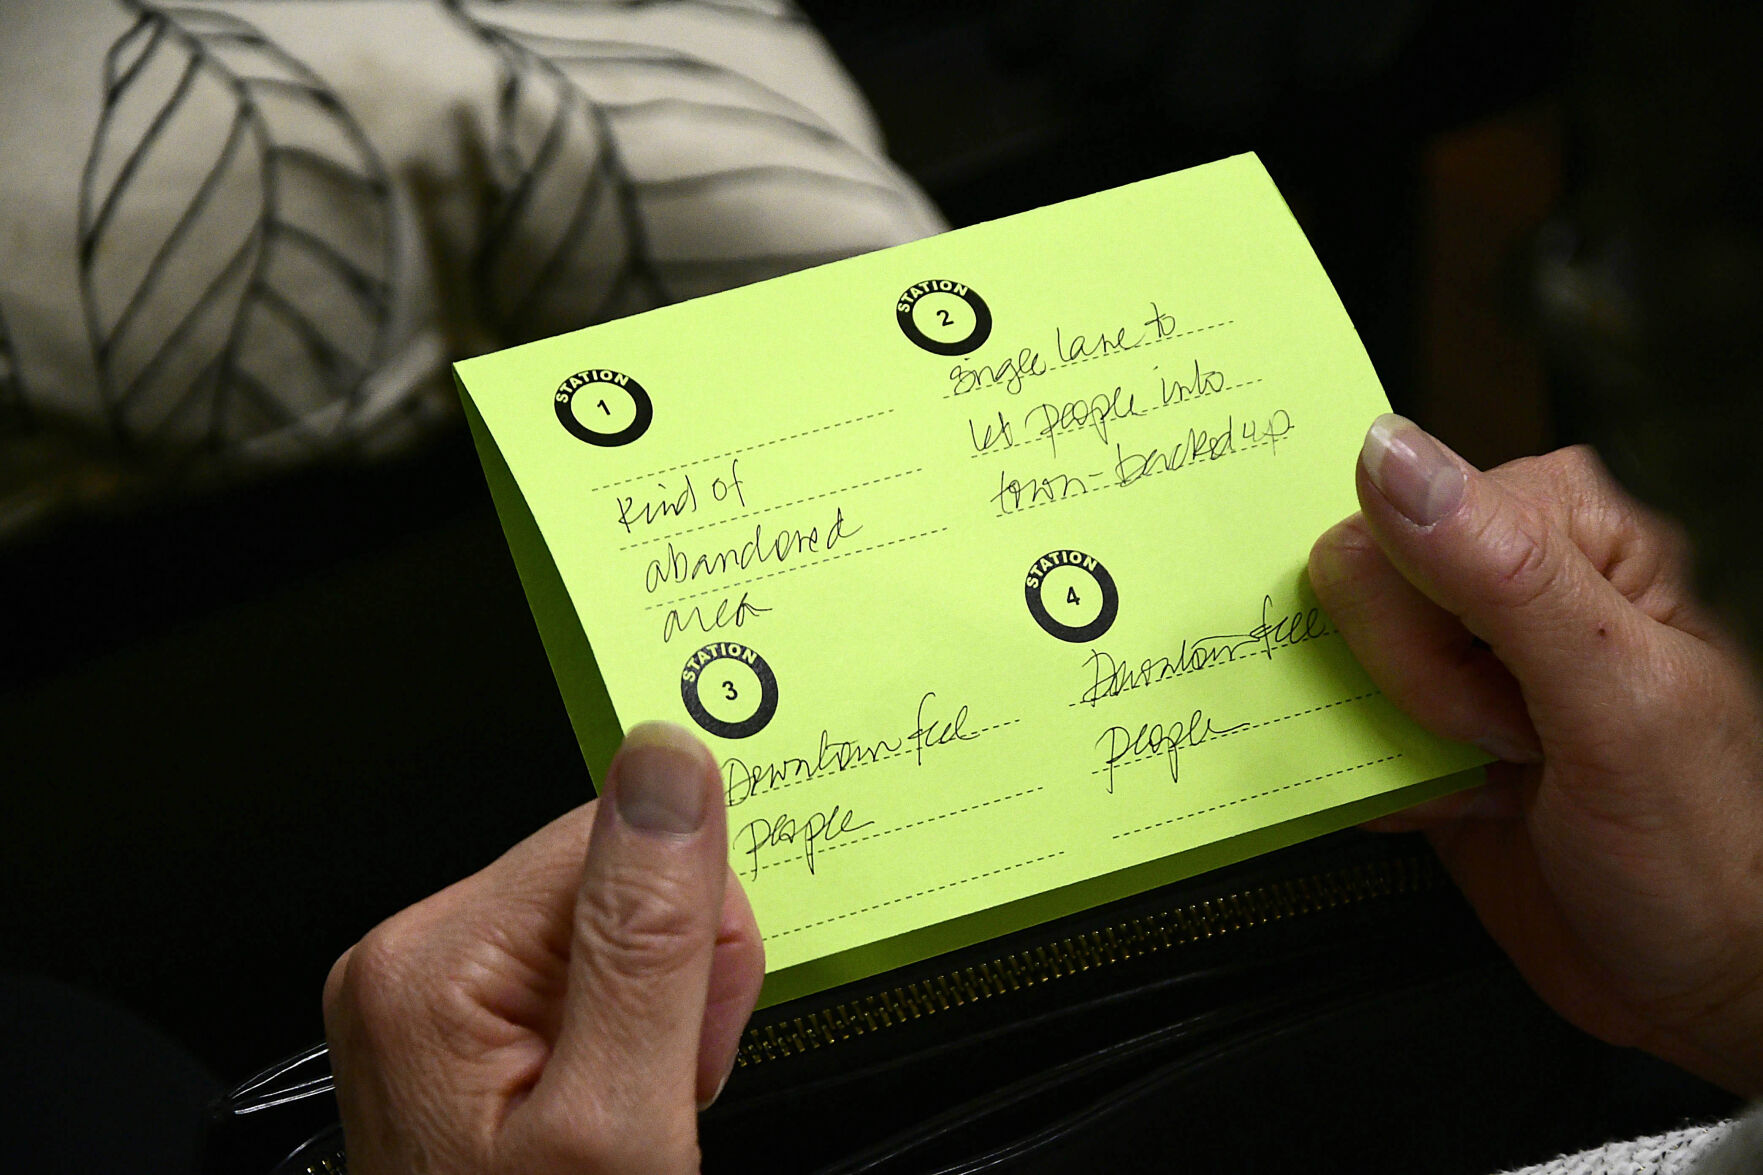 STATION
1
Kind of
abandoned
area
STATION
2
single lane to
let people into
town - backed up
STATION
3
Downtown feel
people
STATION
4
Downtown feel
people